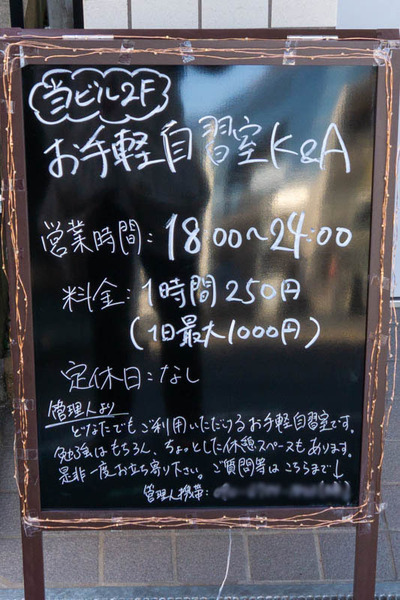 当ビル2F
お手軽自習室K&A
営業時間：18:00～24:00
料金：1時間250円
（1日最大1000円）
定休日：なし
管理人より
どなたでもご利用いただけるお手軽自習室です。
勉強はもちろん、ちょっとした休憩スペースもあります。
是非一度お立ち寄り下さい。ご質問等はこちらまで↓
管理人携帯：